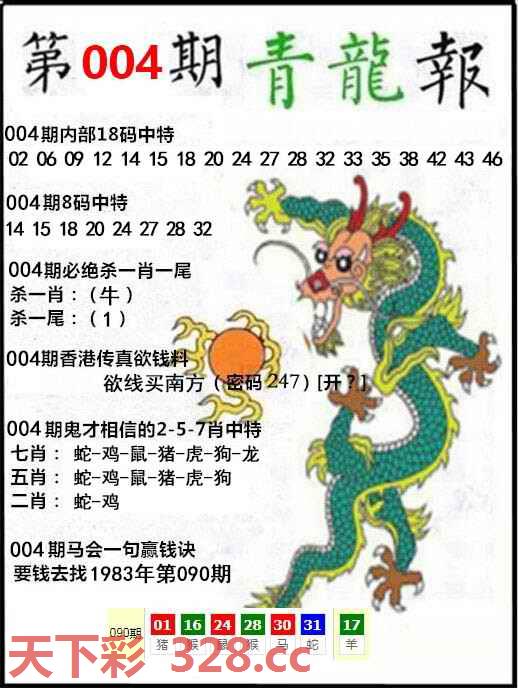 第004期青龍報
004期内部18码中特
02 06 09 12 14 15 18 20 24 27 28 32 33 35 38 42 43 46
004期8码中特
14 15 18 20 24 27 28 32
004期必绝杀一肖一尾
杀一肖：（牛）
杀一尾：（1）
004期香港传真欲钱料
欲线买南方（密码247）[开？]
004期鬼才相信的2-5-7肖中特
七肖： 蛇-鸡-鼠-猪-虎-狗-龙
五肖： 蛇-鸡-鼠-猪-虎-狗
二肖： 蛇-鸡
004期马会一句赢钱诀
要钱去找1983年第090期
090期 01 16 24 28 30 31 17
猪 猴 鼠 猴 马 蛇 羊
天下彩 328.cc